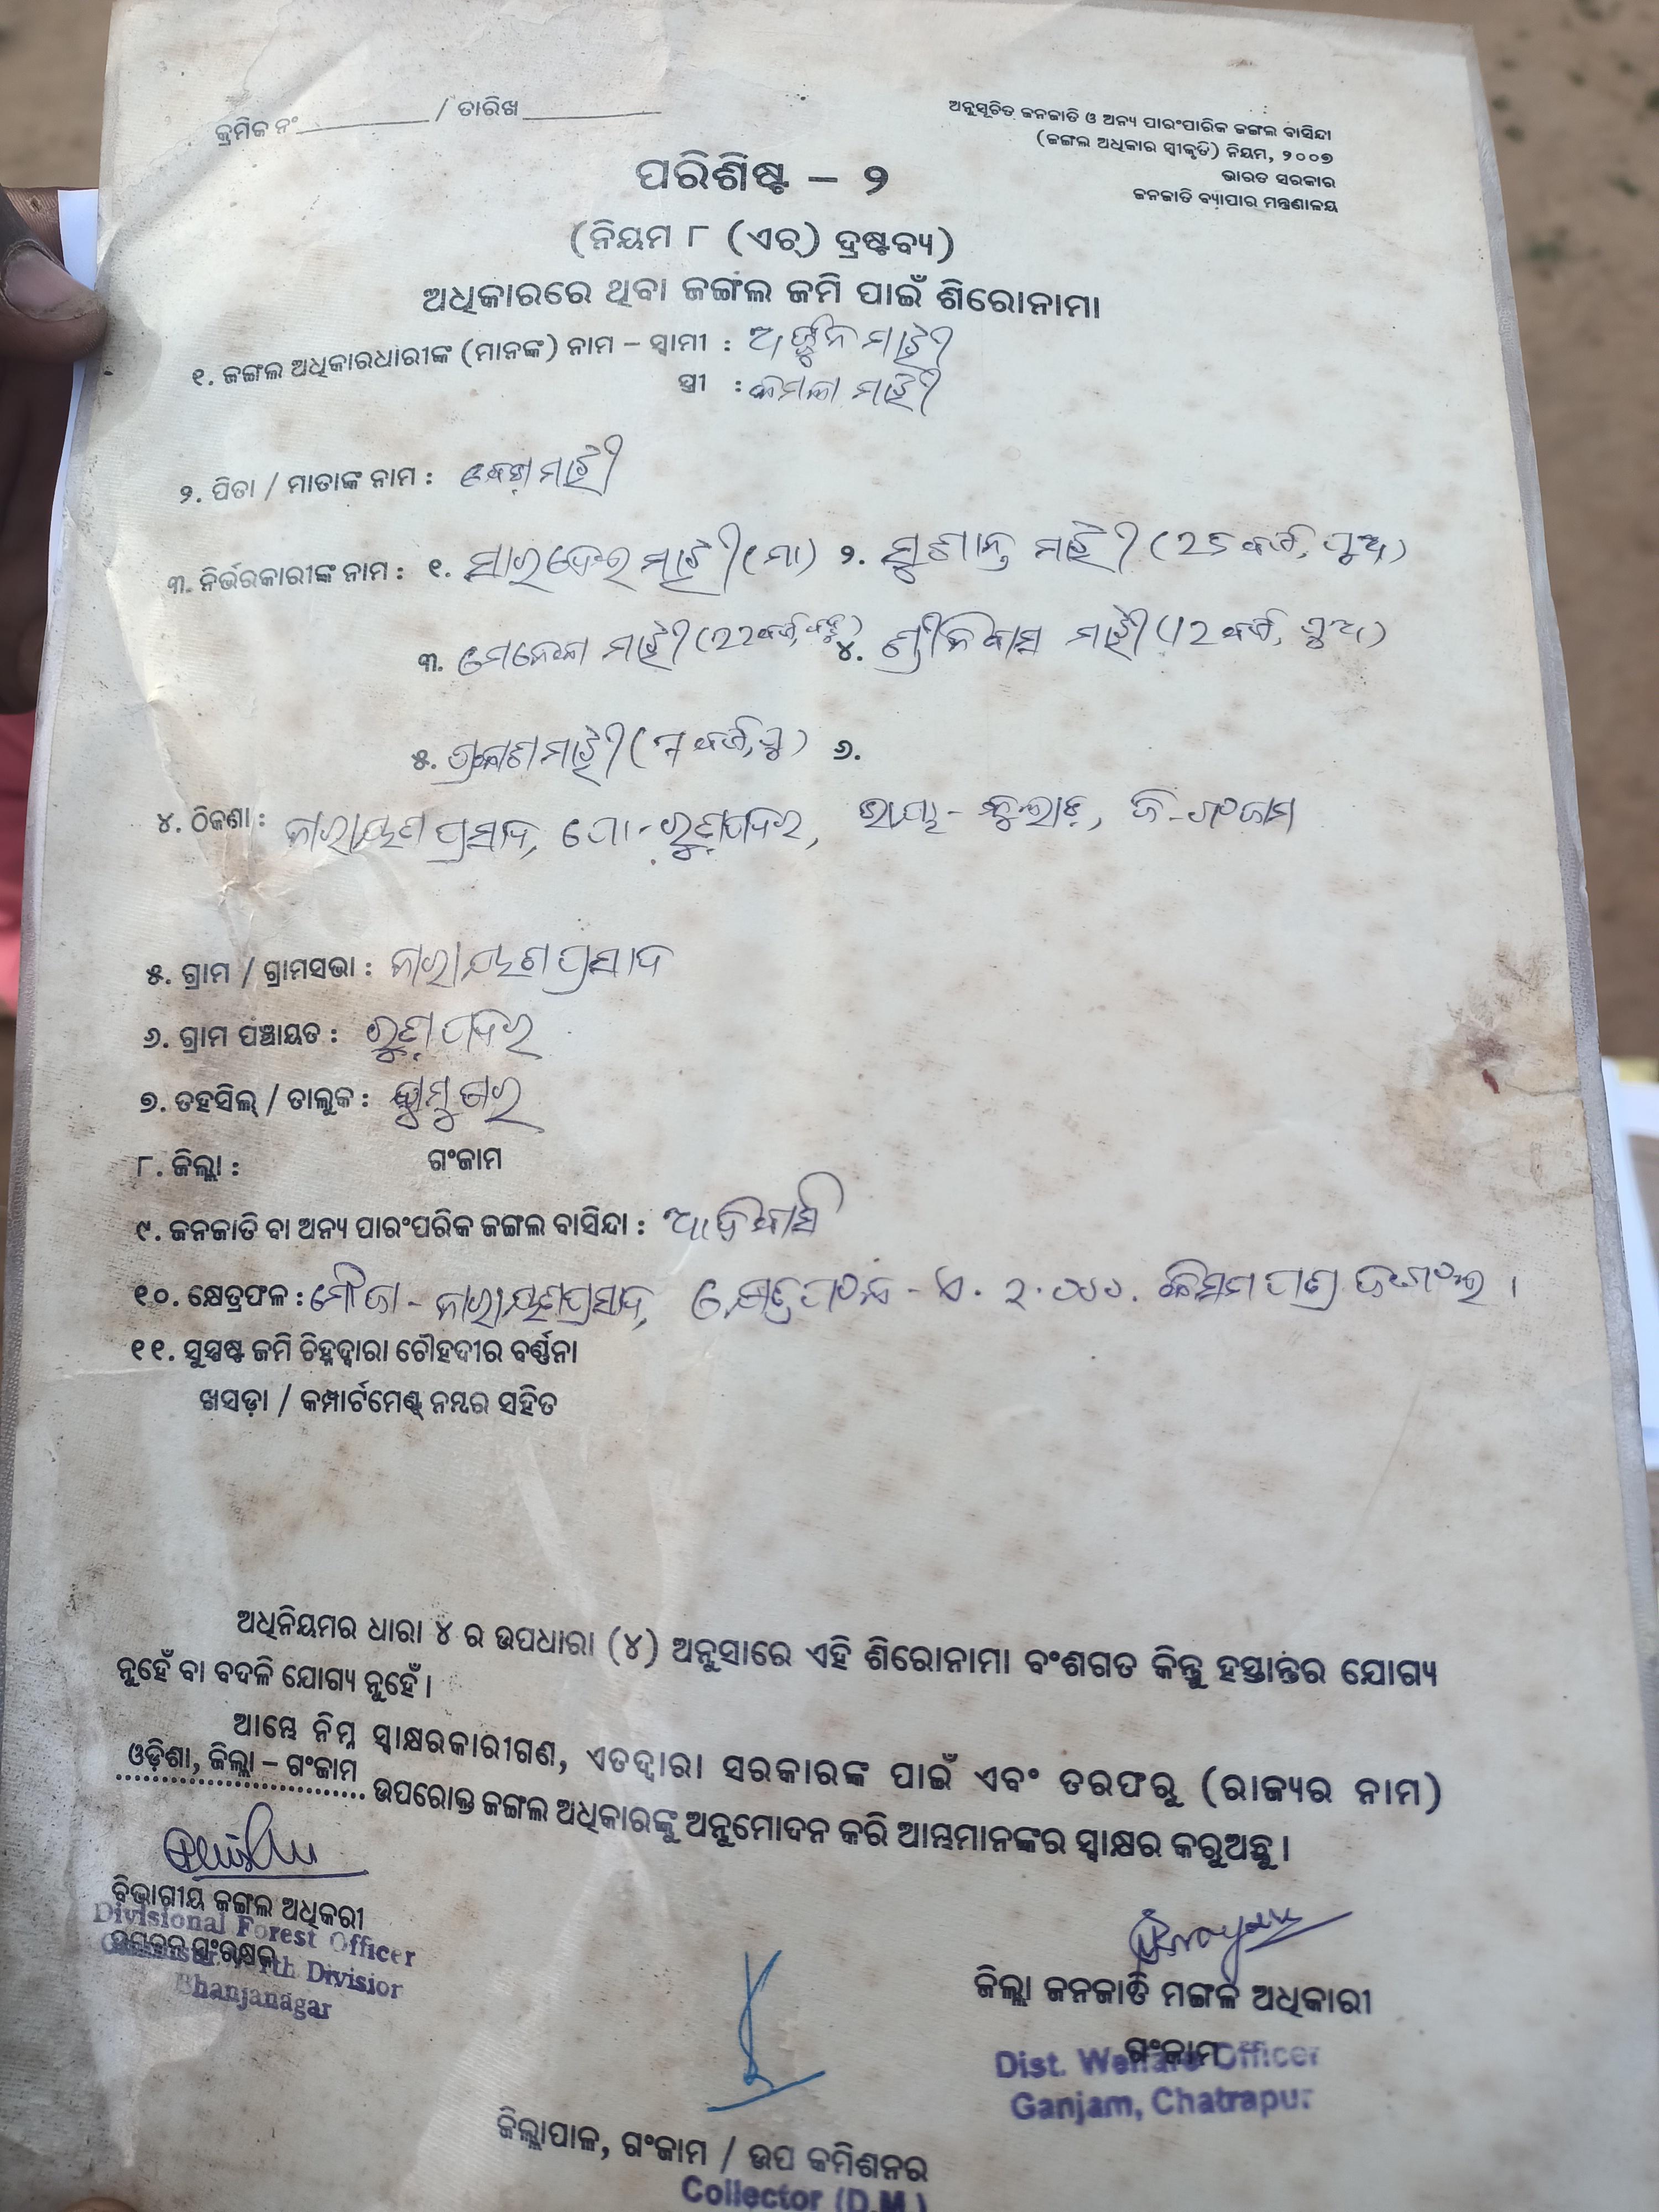 କ୍ରମିକ ନଂ__________ / ତାରିଖ__________
ଅନୁସୂଚିତ ଜନଜାତି ଓ ଅନ୍ୟ ପାରଂପାରିକ ଜଙ୍ଗଲ ବାସିନ୍ଦା
(ଜଙ୍ଗଲ ଅଧିକାର ସ୍ୱୀକୃତି) ନିୟମ, ୨୦୦୭
ଭାରତ ସରକାର
ଜନଜାତି ବ୍ୟାପାର ମନ୍ତ୍ରଣାଳୟ
ପରିଶିଷ୍ଟ – ୨
(ନିୟମ ୮ (ଏଚ୍) ଦ୍ରଷ୍ଟବ୍ୟ)
ଅଧିକାରରେ ଥିବା ଜଙ୍ଗଲ ଜମି ପାଇଁ ଶିରୋନାମା
୧. ଜଙ୍ଗଲ ଅଧିକାରଧାରୀଙ୍କ (ମାନଙ୍କ) ନାମ – ସ୍ୱାମୀ : ଅର୍ଜ୍ଜୁନ ମାଝୀ
ସ୍ତ୍ରୀ : କମଳା ମାଝୀ
୨. ପିତା / ମାତାଙ୍କ ନାମ : ମାଝୀ
୩. ନିର୍ଭରକାରୀଙ୍କ ନାମ : ୧. ମାଝୀ (ମା) ୨. ସୁଶାନ୍ତ ମାଝୀ (25 ବର୍ଷ, ପୁଅ)
୩. ମାଝୀ (22 ବର୍ଷ, ବହୁ) ୪. ଶ୍ରୀନିବାସ ମାଝୀ (12 ବର୍ଷ, ପୁଅ)
୫. ପ୍ରକାଶ ମାଝୀ ( ବର୍ଷ, ପୁ) ୬.
୪. ଠିକଣା : ନାରାୟଣ ପ୍ରସାଦ, ପୋ - , ଭାୟା - , ଜି - ଗଂଜାମ
୫. ଗ୍ରାମ / ଗ୍ରାମସଭା : ନାରାୟଣ ପ୍ରସାଦ
୬. ଗ୍ରାମ ପଞ୍ଚାୟତ :
୭. ତହସିଲ୍ / ତାଲୁକ :
୮. ଜିଲ୍ଲା : ଗଂଜାମ
୯. ଜନଜାତି ବା ଅନ୍ୟ ପାରଂପରିକ ଜଙ୍ଗଲ ବାସିନ୍ଦା : ଆଦିବାସି
୧୦. କ୍ଷେତ୍ରଫଳ : ମୌଜା - ନାରାୟଣପ୍ରସାଦ,
୧୧. ସୁସ୍ପଷ୍ଟ ଜମି ଚିହ୍ନଦ୍ୱାରା ଚୌହଦୀର ବର୍ଣ୍ଣନା
ଖସଡ଼ା / କମ୍ପାର୍ଟମେଣ୍ଟ୍ ନମ୍ବର ସହିତ
ଅଧିନିୟମର ଧାରା ୪ ର ଉପଧାରା (୪) ଅନୁସାରେ ଏହି ଶିରୋନାମା ବଂଶଗତ କିନ୍ତୁ ହସ୍ତାନ୍ତର ଯୋଗ୍ୟ
ନୁହେଁ ବା ବଦଳି ଯୋଗ୍ୟ ନୁହେଁ ।
ଆମ୍ଭେ ନିମ୍ନ ସ୍ୱାକ୍ଷରକାରୀଗଣ, ଏତଦ୍ୱାରା ସରକାରଙ୍କ ପାଇଁ ଏବଂ ତରଫରୁ (ରାଜ୍ୟର ନାମ)
ଓଡ଼ିଶା, ଜିଲ୍ଲା – ଗଂଜାମ ଉପରୋକ୍ତ ଜଙ୍ଗଲ ଅଧିକାରଙ୍କୁ ଅନୁମୋଦନ କରି ଆମ୍ଭମାନଙ୍କର ସ୍ୱାକ୍ଷର କରୁଅଛୁ ।
ବିଭାଗୀୟ ଜଙ୍ଗଲ ଅଧିକାରୀ
Divisional Forest Officer
ସଂରକ୍ଷକ
North Division
Bhanjanagar
ଜିଲ୍ଲା ଜନଜାତି ମଙ୍ଗଳ ଅଧିକାରୀ
ଗଂଜାମ
Dist. Welfare Officer
Ganjam, Chatrapur
ଜିଲ୍ଲାପାଳ, ଗଂଜାମ / ଉପ କମିଶନର
Collector (D.M.)